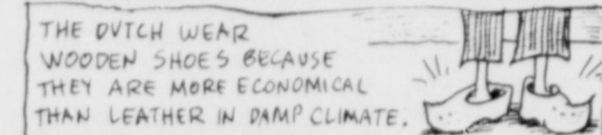 THE DVTCH WEAR
WOODEN SHOES BECAUSE
THEY ARE MORE ECONOMICAL
THAN LEATHER IN DAMP CLIMATE.